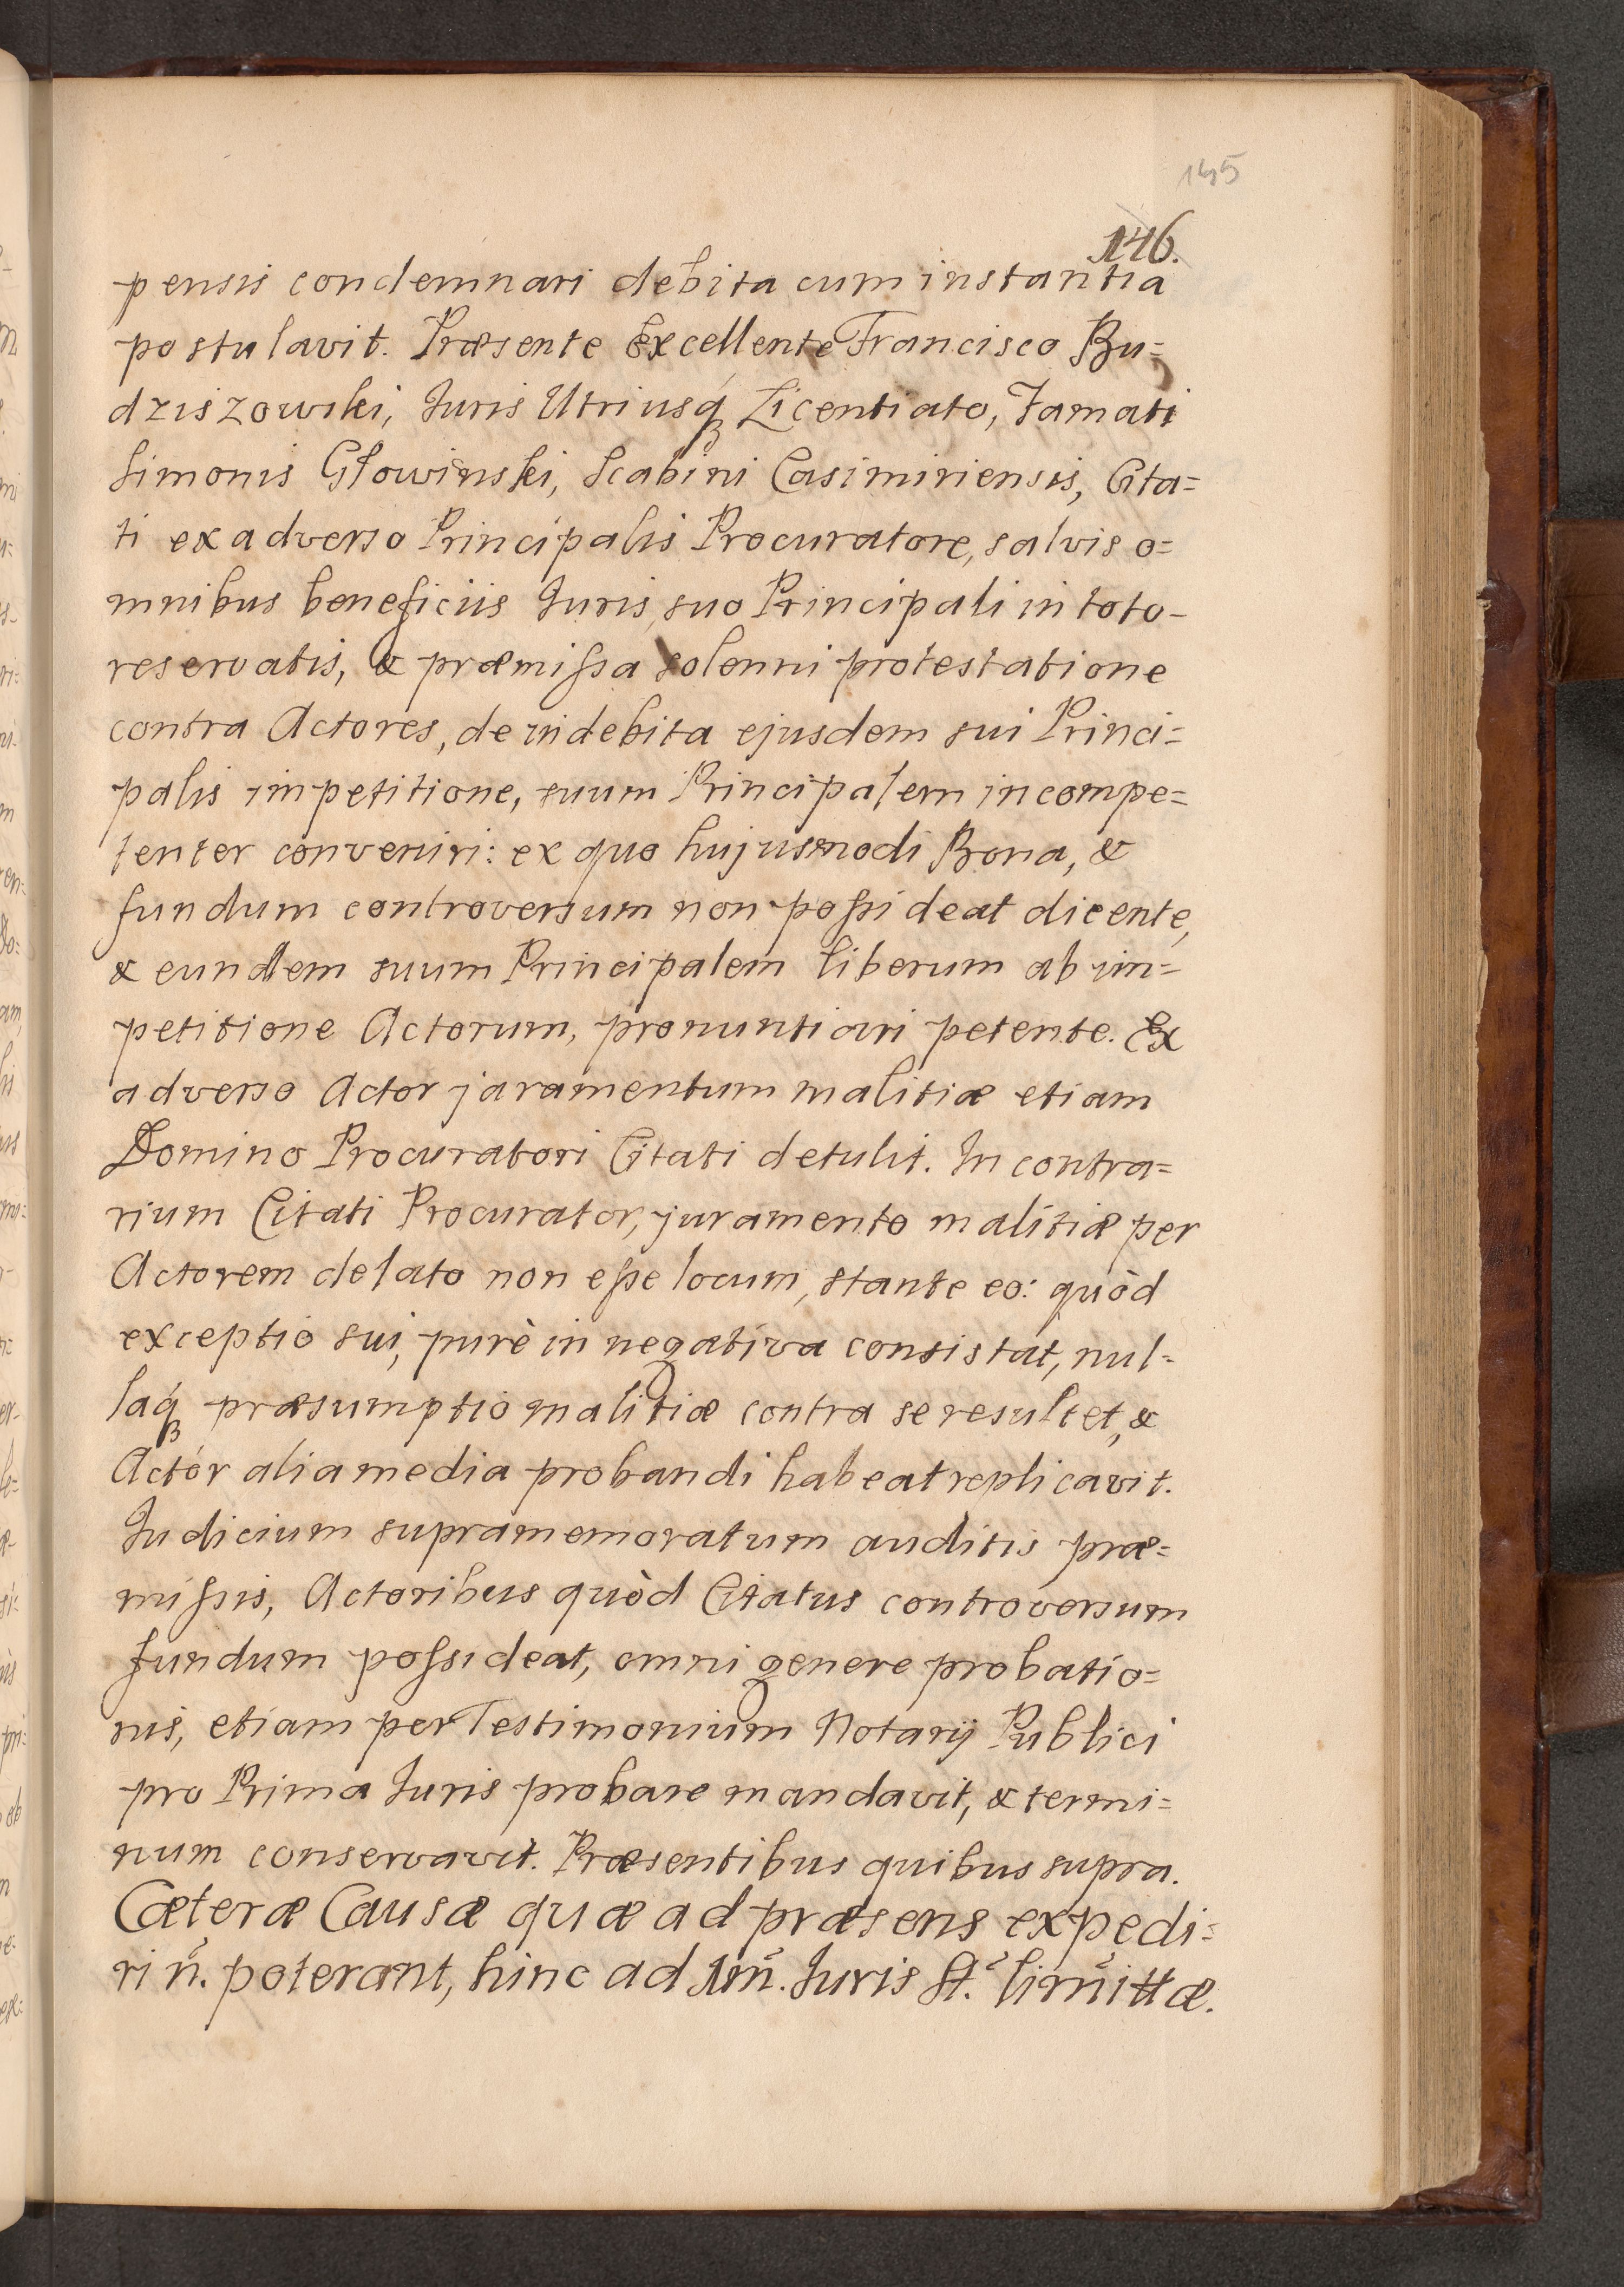 145
146.
pensis condemnari debita cum instantia
postulavit. Præsente Excellente Francisco Bu=
dziszowski, Juris Utriusq́ꝫ Licentiato, Famati
Simonis Głowinski, Scabini Casimiriensis, Cita=
ti ex adverso Principalis Procuratore, salvis o=
mnibus beneficiis Juris, suo Principali in toto-
reservatis, & præmiſsa solenni protestatione
contra Actores, de indebita ejusdem sui Princi=
palis impetitione, suum Principalem incompe=
tenter conveniri: ex quo hujusmodi Bona, &
fundum controversum non poſsideat dicente,
& eundem suum Principalem liberum ab im=
petitione Actorum, pronuntiari petente. Ex
adverso Actor jaramentum malitiæ etiam
Domino Procuratori Citati detulit. In contra=
rium Citati Procurator, juramento malitiæ per
Actorem delato non eſse locum, stante eo: quòd
exceptio sui, purè in negativa consistat, nul=
laq́ꝫ præsumptio malitiæ contra se resultet, &
Actor alia media probandi habeat replicavit.
Judicium supramemoratum auditis præ=
miſsis, Actoribus quòd Citatus controversum
fundum poſsideat, omni genere probatio=
nis, etiam per Testimonium Notarij Publici
pro Prima Juris probare mandavit, & termi=
num conservavit. Præsentibus quibus supra.
Cæteræ Causæ quæ ad præsens expedi=
ri n̄. poterant, hinc ad 1m̄. Juris